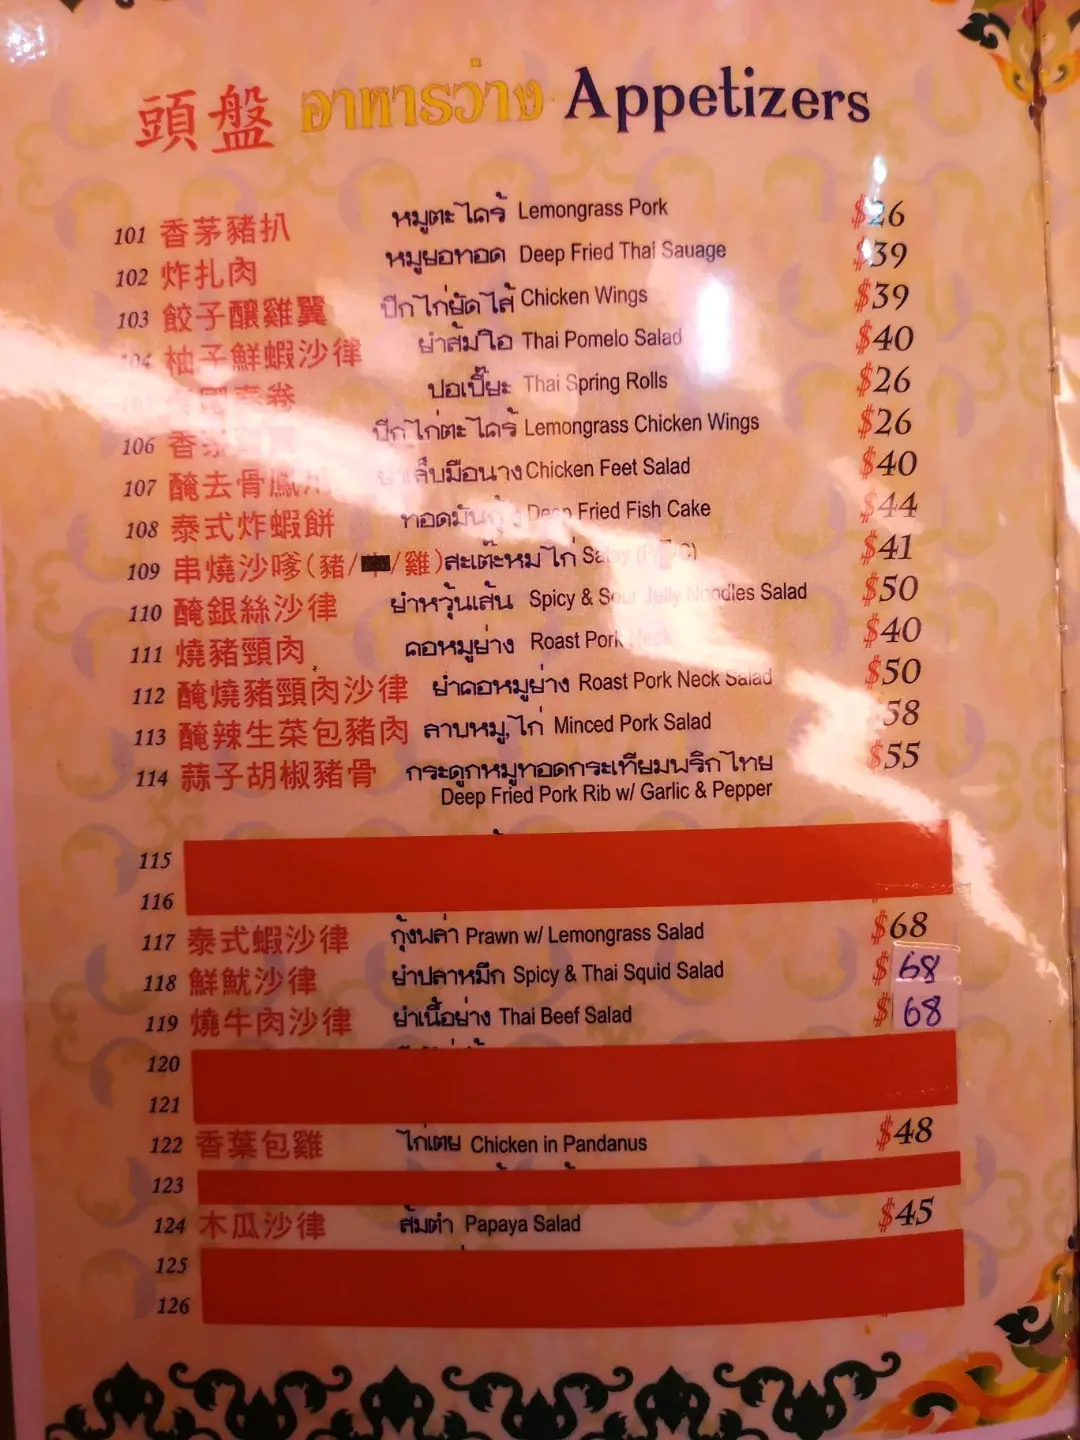 頭盤 อาหารว่าง Appetizers
101 香茅豬扒 หมูตะไคร้ Lemongrass Pork $26
102 炸扎肉 หมูยอทอด Deep Fried Thai Sauage $39
103 餃子釀雞翼 ปีกไก่ยัดไส้ Chicken Wings $39
104 柚子鮮蝦沙律 ยำส้มโอ Thai Pomelo Salad $40
春卷 ปอเปี๊ยะ Thai Spring Rolls $26
106 香茅 ปีกไก่ตะไคร้ Lemongrass Chicken Wings $26
107 醃去骨鳳爪 ยำเล็บมือนาง Chicken Feet Salad $40
108 泰式炸蝦餅 ทอดมันกุ้ง Deep Fried Fish Cake $44
109 串燒沙嗲(豬/ /雞) สะเต๊ะหมู ไก่ Satay $41
110 醃銀絲沙律 ยำหวุ้นเส้น Spicy & Sour Jelly Noodles Salad $50
111 燒豬頸肉 คอหมูย่าง Roast Pork Neck $40
112 醃燒豬頸肉沙律 ยำคอหมูย่าง Roast Pork Neck Salad $50
113 醃辣生菜包豬肉 ลาบหมู,ไก่ Minced Pork Salad 58
114 蒜子胡椒豬骨 กระดูกหมูทอดกระเทียมพริกไทย $55
Deep Fried Pork Rib w/ Garlic & Pepper
115
116
117 泰式蝦沙律 กุ้งพล่า Prawn w/ Lemongrass Salad $68
118 鮮魷沙律 ยำปลาหมึก Spicy & Thai Squid Salad $68
119 燒牛肉沙律 ยำเนื้อย่าง Thai Beef Salad $68
120
121
122 香葉包雞 ไก่เตย Chicken in Pandanus $48
123
124 木瓜沙律 ส้มตำ Papaya Salad $45
125
126